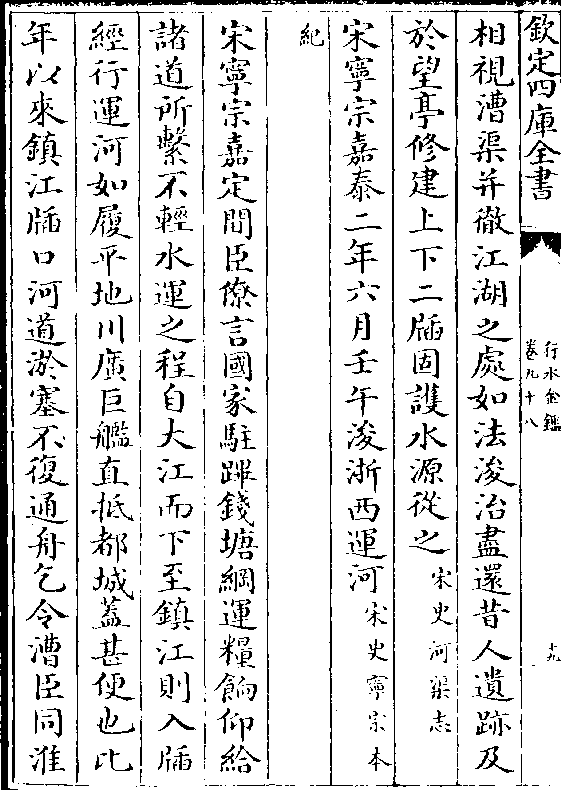 欽定四庫全書
行水金鑑
卷九十八
十九
相視漕渠并徹江湖之處如法浚治盡還昔人遺跡及
於望亭修建上下二牐固護水源從之宋史河渠志
宋寧宗嘉泰二年六月壬午浚浙西運河宋史寧宗本
紀
宋寧宗嘉定間臣僚言國家駐蹕錢塘綱運糧餉仰給
諸道所繫不輕水運之程自大江而下至鎮江則入牐
經行運河如履平地川廣巨艦直抵都城蓋甚便也比
年以來鎮江牐口河道淤塞不復通舟乞令漕臣同淮